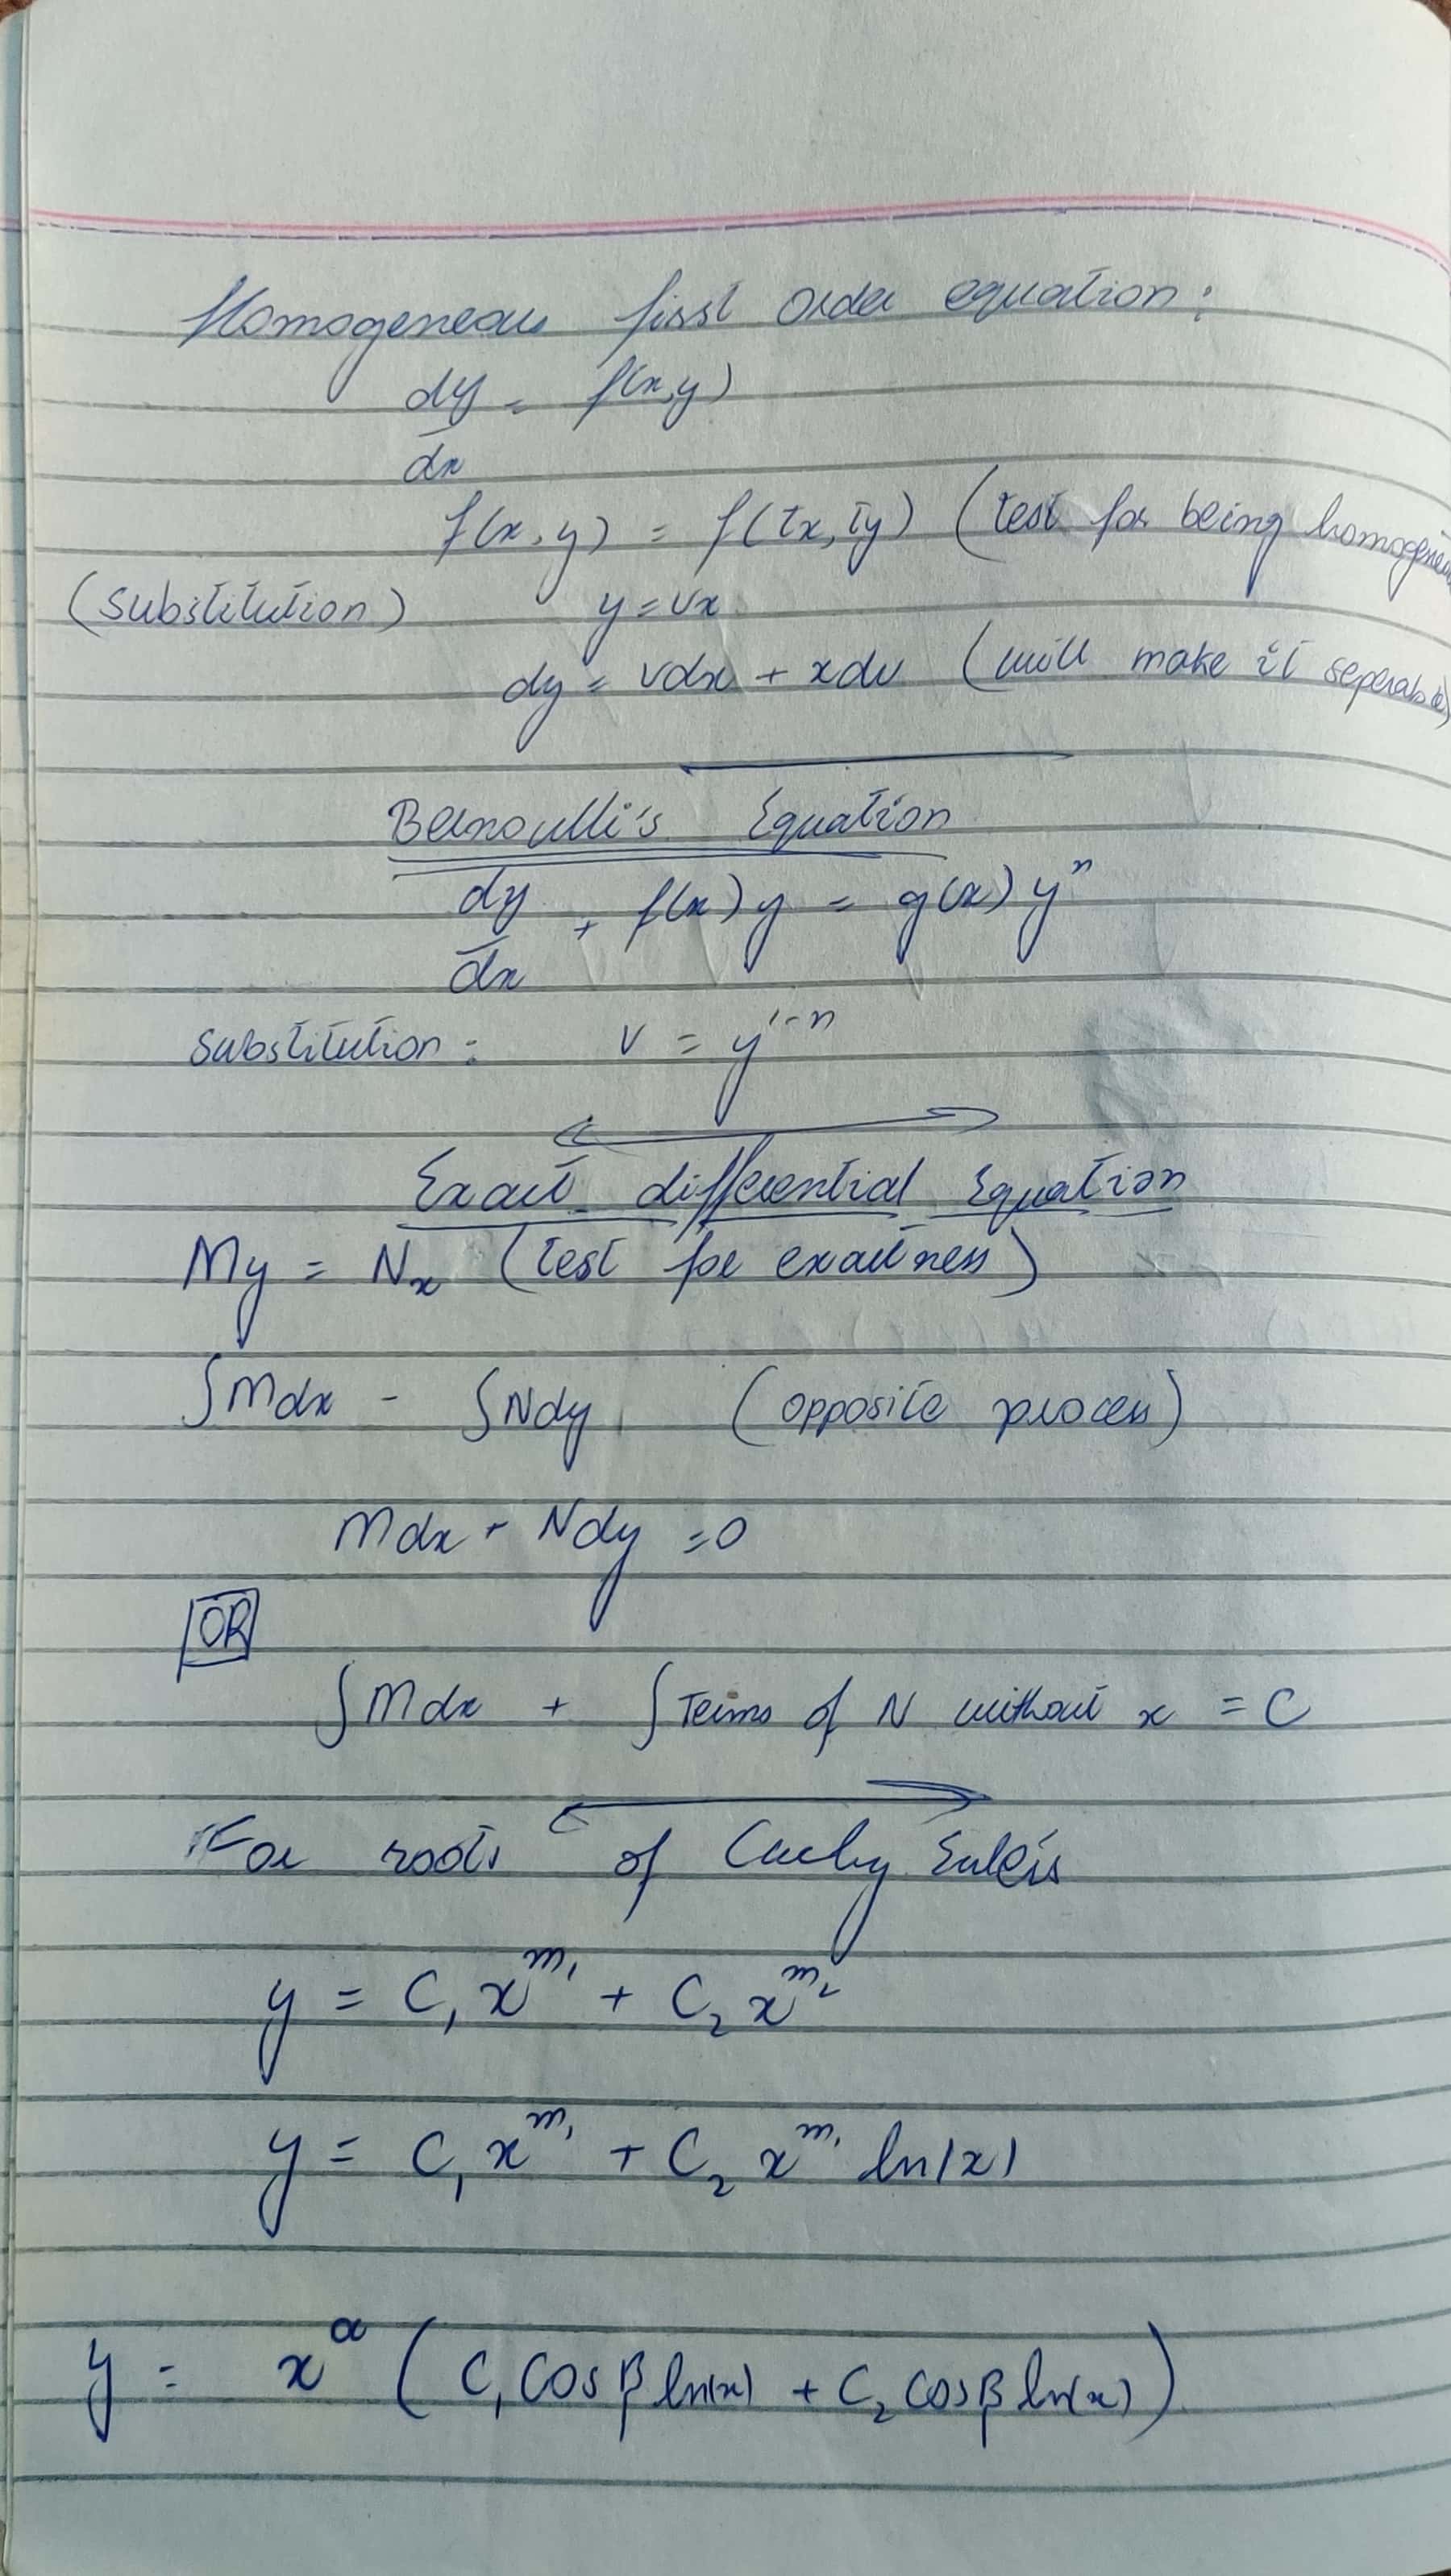 Homogeneous first order equation:
dy = f(x,y)
dx
f(x,y) = f(tx,ty) (test for being homogeneou
(substitution) y=vx
dy = vdx + xdv (will make it seperable)
Bernoulli's Equation
dy + f(x)y = g(x)yⁿ
dx
Substitution: v = y¹⁻ⁿ
Exact differential Equation
My = Nx (test for exactness)
∫Mdx - ∫Ndy (opposite process)
Mdx + Ndy =0
OR
∫Mdx + ∫Terms of N without x = C
For roots of Cauchy Euler's
y = C₁x^m₁ + C₂x^m₂
y = C₁x^m₁ + C₂x^m₁ ln|x|
y = x^α (C₁cosβln(x) + C₂cosβln(x))